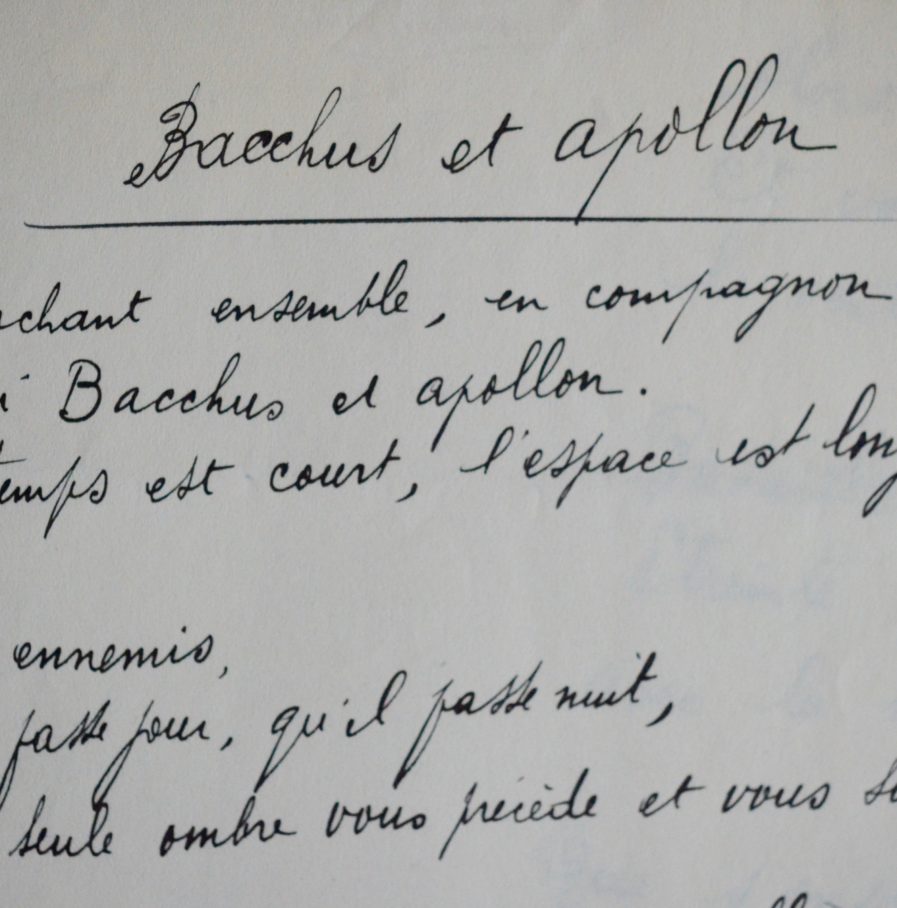 Bacchus et apollon
chant ensemble, en compagnon
Bacchus et apollon.
temps est court, l'espace est long
ennemis,
passe jour, qu'il passe nuit,
seule ombre vous précède et vous